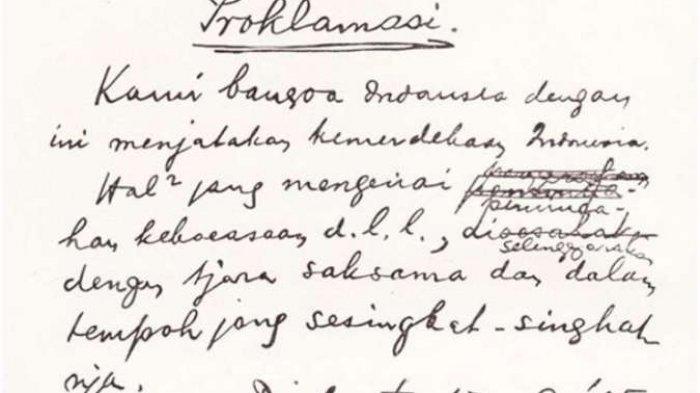 Proklamasi.
Kami bangsa Indonesia dengan
ini menjatakan kemerdekaan Indonesia.
Hal² jang mengenai
peminda-
han kekoeasaan d.l.l.,
diselenggarakan
dengan tjara saksama dan dalam
tempoh jang sesingkat-singkat
nja.